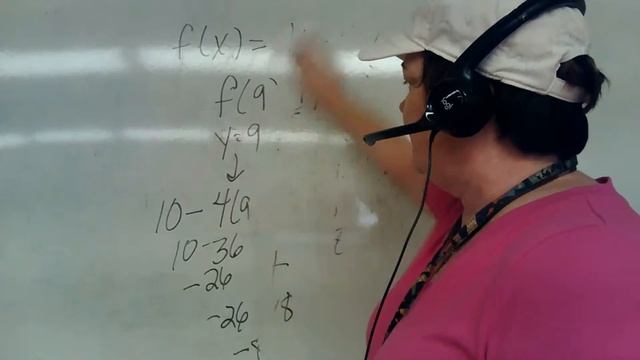 f(x) =
f(9)
y=9
10 - 4(9
10 - 36
-26
-26 18